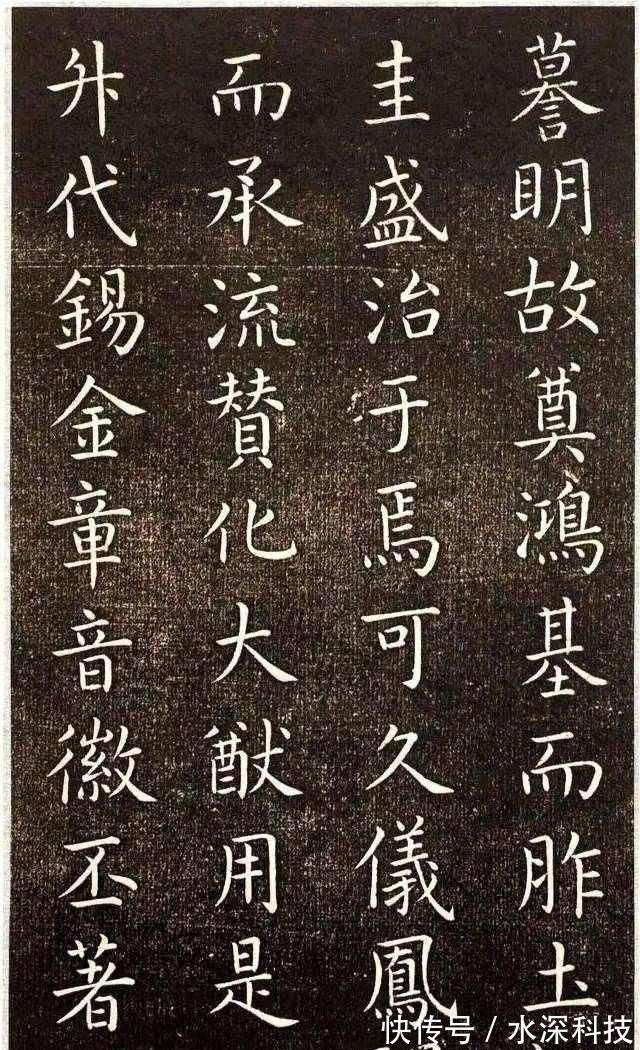 謩明故奠鴻基而胙土
圭盛治于焉可久儀鳳
而承流賛化大猷用是
升代錫金章音徽丕著
快传号 / 水深科技